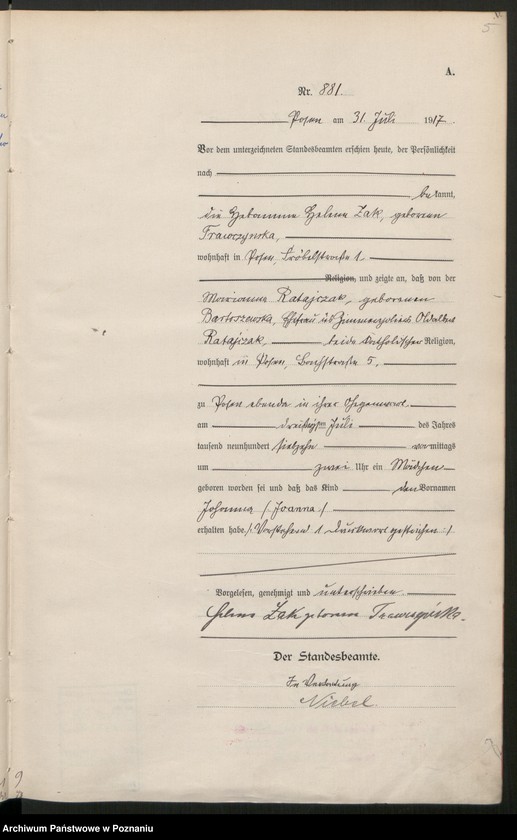 5
A.
Nr. 881.
Posen am 31. Juli 1917.
Vor dem unterzeichneten Standesbeamten erschien heute, der Persönlichkeit
nach
bekannt,
die Hebamme Helene Zak, geborene
Trawczynska,
wohnhaft in Posen, 1
Religion, und zeigte an, daß von der
Marianna Ratajczak, geborenen
Bartoszewska, Ehefrau des
Ratajczak, beide katholischer Religion,
wohnhaft in Posen, 5,
zu Posen ebenda in ihrer Gegenwart
am dreißigsten Juli des Jahres
tausend neunhundert siebzehn vormittags
um zwei Uhr ein Mädchen
geboren worden sei und daß das Kind den Vornamen
Johanna /Joanna/
erhalten habe. /: Vorstehend 1 Druckwort gestrichen :/
Vorgelesen, genehmigt und unterschrieben
Helene Zak geborene
Der Standesbeamte.
In Vertretung
Archiwum Państwowe w Poznaniu